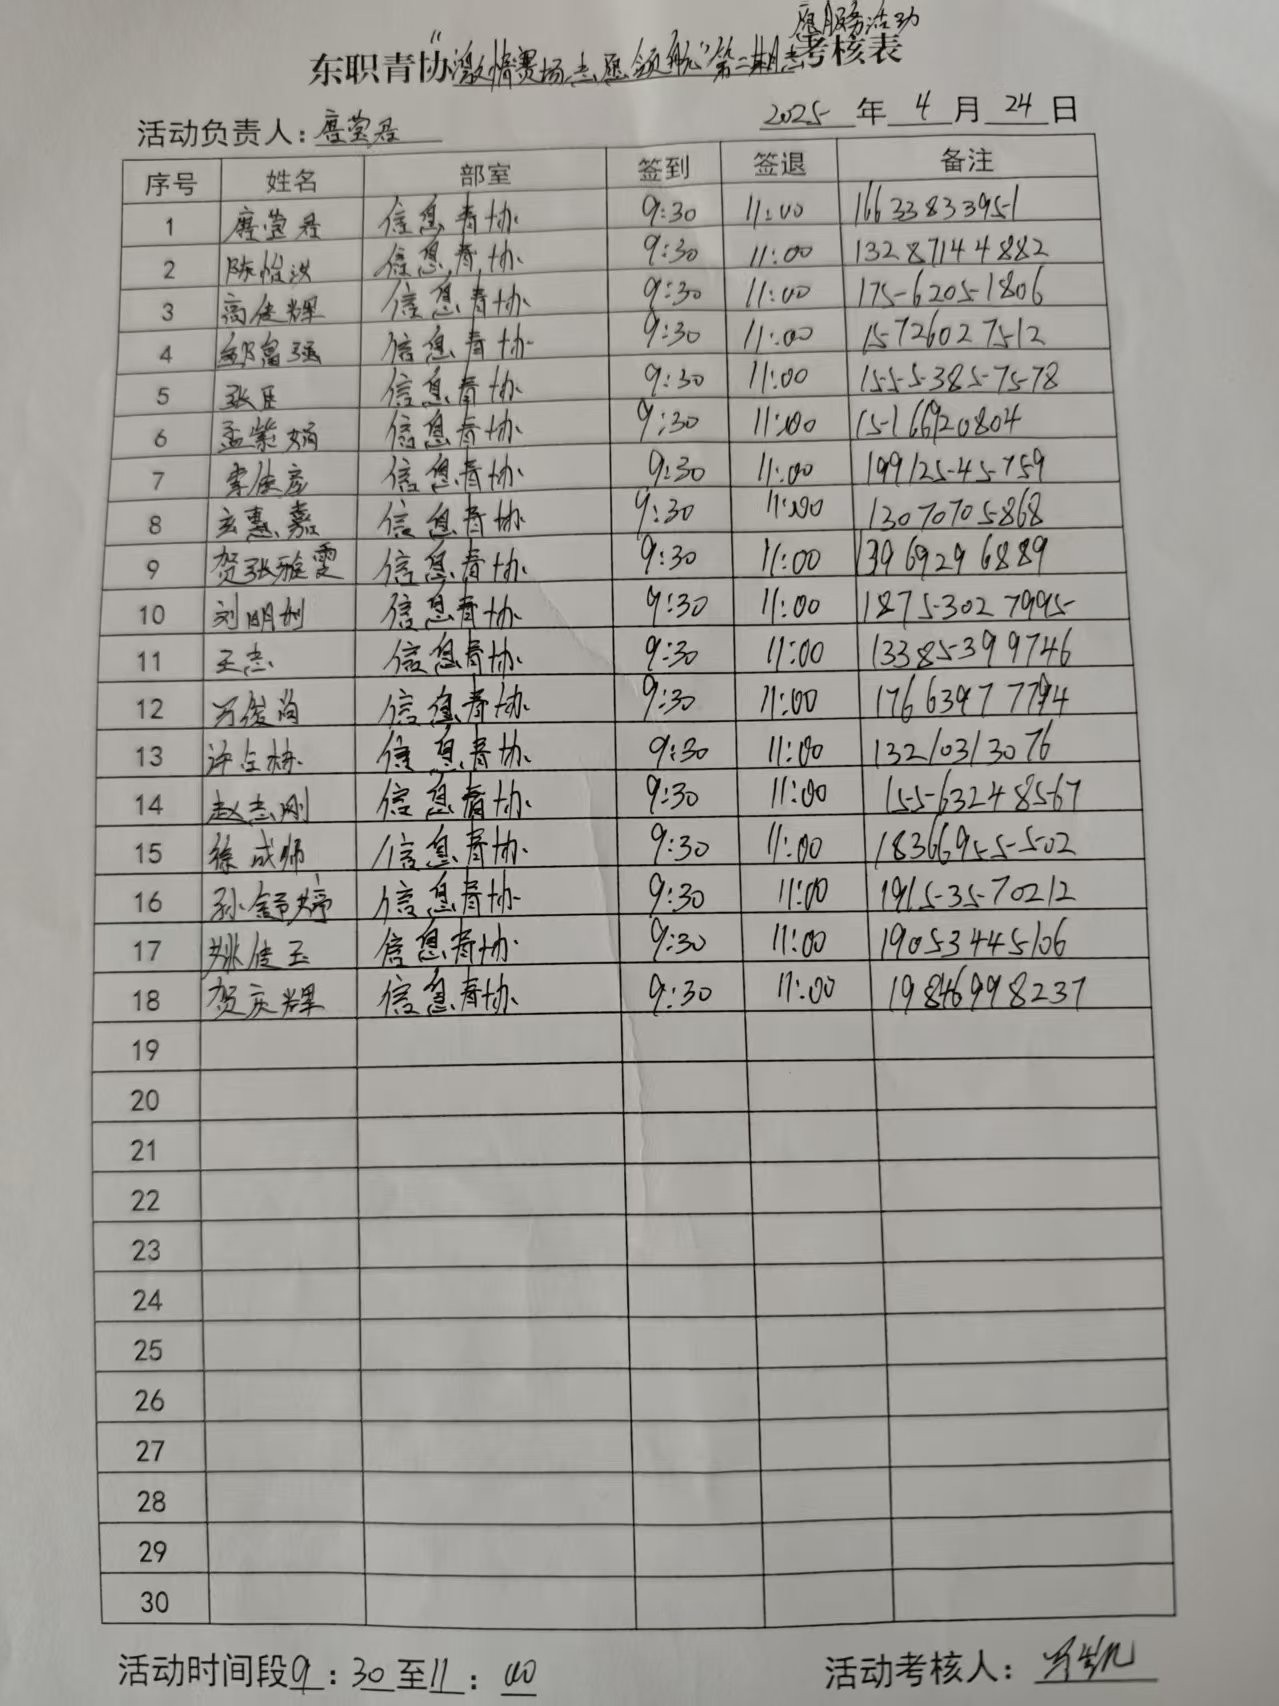 愿服务活动
东职青协“激情赛场,志愿领航”第二期志考核表
活动负责人: 2025年4月24日
序号 姓名 部室 签到 签退 备注
1 信息青协 9:30 11:00 16633833951
2 陈怡洪 信息青协 9:30 11:00 13287144882
3 高佳辉 信息青协 9:30 11:00 17562051806
4 邹富强 信息青协 9:30 11:00 15726027512
5 张臣 信息青协 9:30 11:00 15553857578
6 孟紫娟 信息青协 9:30 11:00 15166920804
7 李佳彦 信息青协 9:30 11:00 19912545759
8 玄惠嘉 信息青协 9:30 11:00 13070705868
9 贺张雅雯 信息青协 9:30 11:00 13969296889
10 刘明州 信息青协 9:30 11:00 18753027995
11 王志 信息青协 9:30 11:00 13385399746
12 万俊尚 信息青协 9:30 11:00 17663977794
13 信息青协 9:30 11:00 13210313076
14 赵志刚 信息青协 9:30 11:00 15563248567
15 徐成师 信息青协 9:30 11:00 18366955502
16 孙舒婷 信息青协 9:30 11:00 19153570212
17 姚佳玉 信息青协 9:30 11:00 19053445106
18 贺庆辉 信息青协 9:30 11:00
19
20
21
22
23
24
25
26
27
28
29
30
活动时间段9:30至11:00 活动考核人: